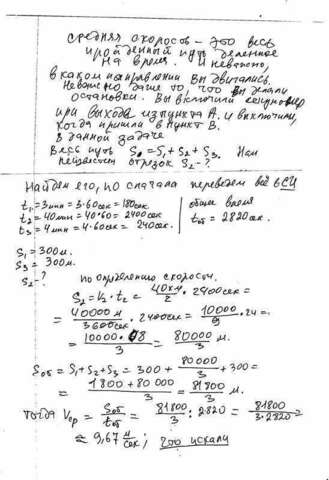 Средняя скорость - это весь
пройденный путь деленное
на время. И неважно,
в каком направлении вы двигались.
Неважно даже то что вы делали
остановки. Вы включили секундомер
при выходе из пункта А. и выключили,
когда пришли в пункт В.
В данной задаче
Весь путь S₀ = S₁ + S₂ + S₃. Нам
неизвестен отрезок S₂ - ?
Найдем его, но сначала переведем всё в СИ
t₁ = 3мин = 3·60сек = 180сек.
t₂ = 40мин = 40·60 = 2400сек
t₃ = 4мин = 4·60сек = 240сек.
общее время
tоб = 2820сек.
S₁ = 300м.
S₃ = 300м.
S₂ - ?
по определению скорости.
S₂ = V₂ · t₂ = 40км/ч · 2400сек =
= 40000м/3600сек · 2400сек = 10000/9 · 24 =
= 10000·8/3 = 80000/3 м.
Sоб = S₁ + S₂ + S₃ = 300 + 80000/3 + 300 =
= 1800 + 80000/3 = 81800/3 м.
Тогда Vср = Sоб/tоб = 81800/3 : 2820 = 81800/3·2820 =
≈ 9,67 м/сек; что искали